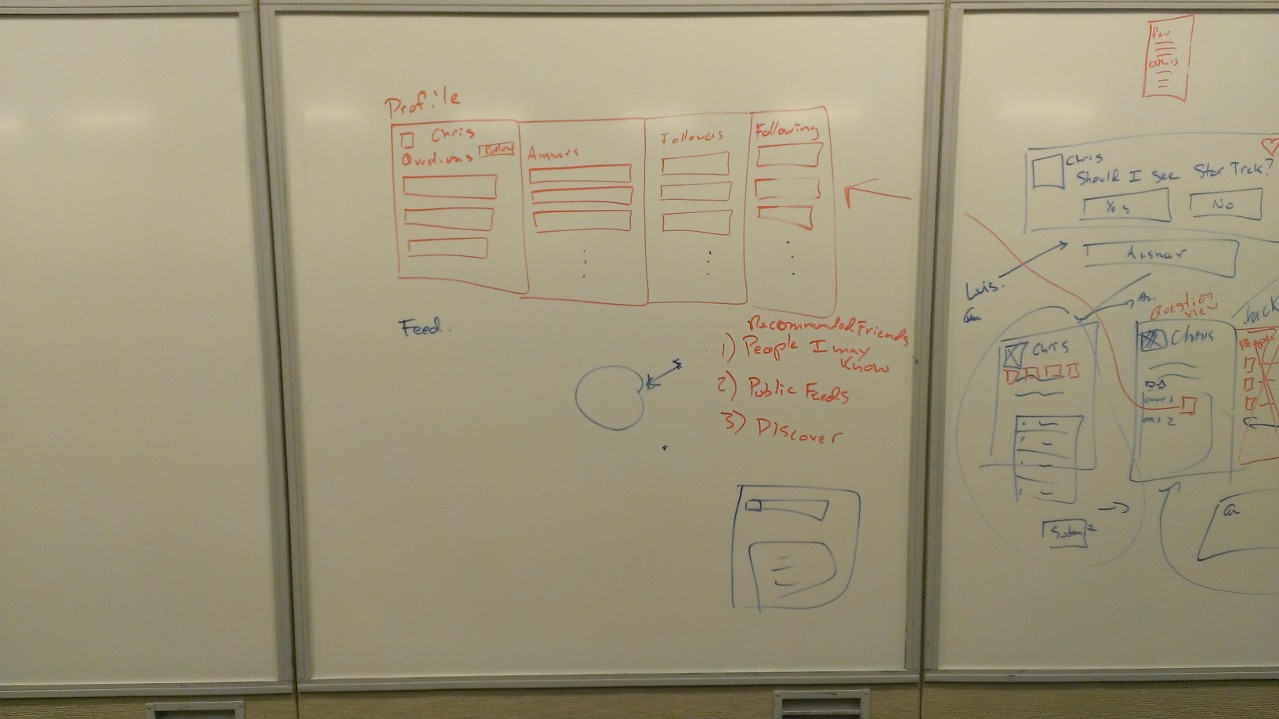 Profile
Chris
Questions Follow
Answers
Followers
Following
Feed.
Recommended Friends
1) People I may
Know
2) Public Feeds
3) Discover
fav
Chris
Should I see Star Trek?
Yes
No
Answer
Luis.
Chris
Question
view
Chris
back
People